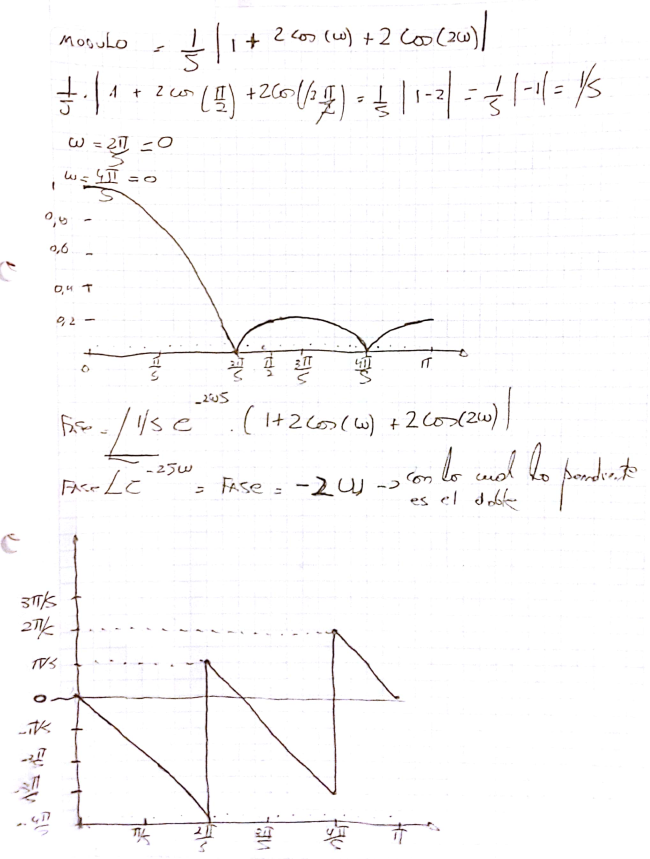 MODULO = 1/5 | 1 + 2 cos (ω) + 2 Cos(2ω)|
1/5 · | 1 + 2 cos (π/2) + 2Cos(2 π/2) = 1/5 |1-2| = 1/5 |-1| = 1/5
ω = 2π/5 = 0
ω = 4π/5 = 0
1
0,8
0,6
0,4
0,2
0 π/5 2π/5 π/2 3π/5 4π/5 π
Fase = ∠1/5 e^-2ωj · (1+2Cos(ω) + 2Cos(2ω)|
FASE ∠e^-2jω = FASE = -2ω → con lo cual la pendiente
es el doble
3π/5
2π/5
π/5
0
-π/5
-2π/5
-3π/5
-4π/5
π/5 2π/5 3π/5 4π/5 π